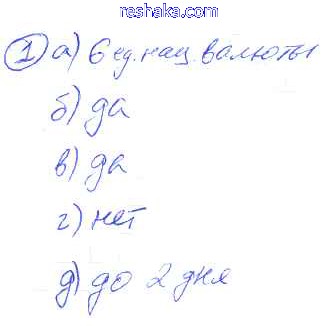 reshaka.com
1 а) 6 ед. нац. валюты
б) да
в) да
г) нет
д) до 2 дня